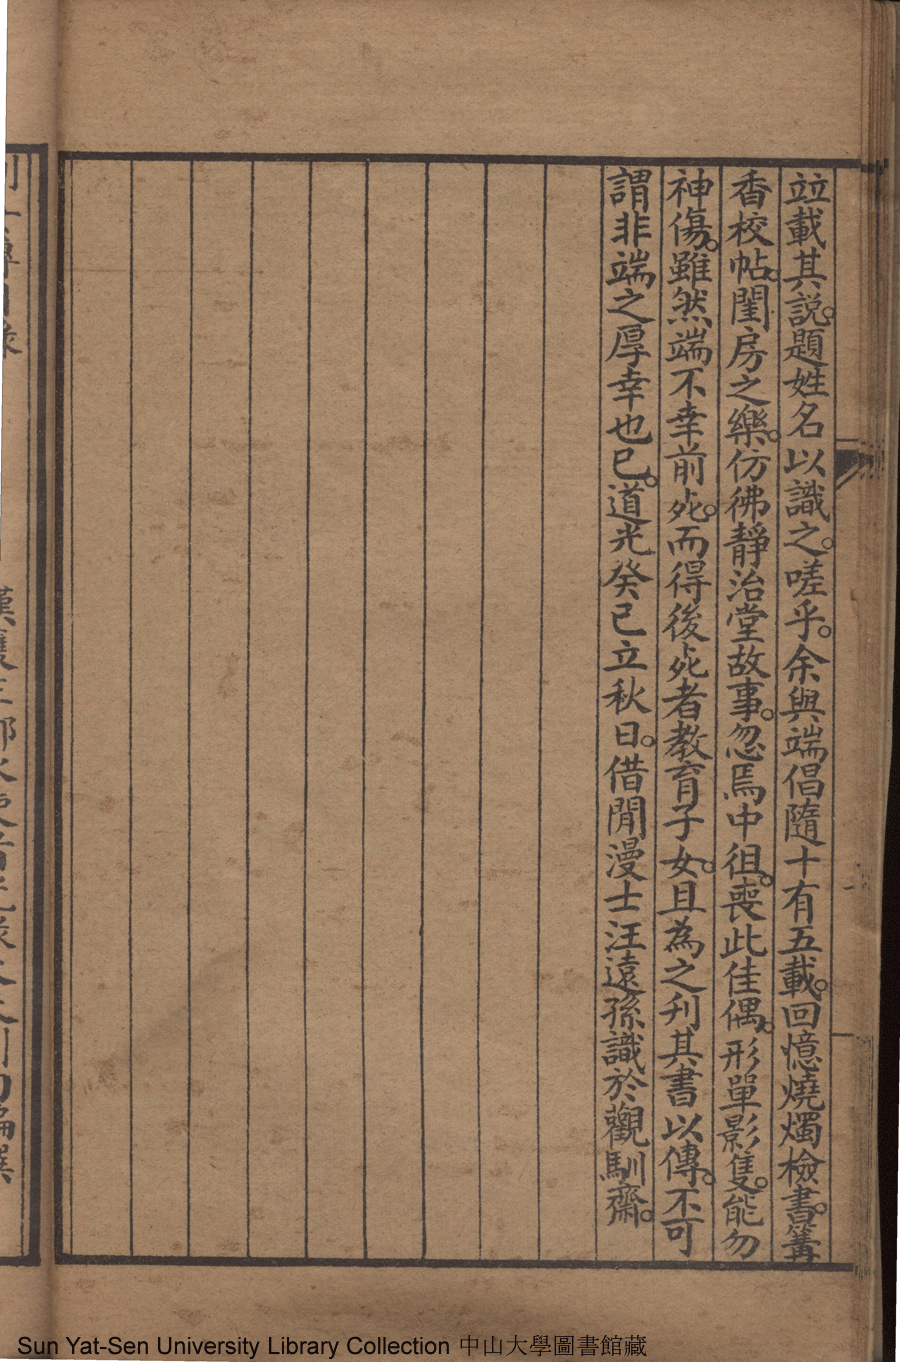 竝載其説。題姓名以識之。嗟乎。余與端倡隨十有五載。回憶燒燭檢書。篝
香校帖。閨房之樂。仿彿靜治堂故事。忽焉中徂。喪此佳偶。形單影隻。能勿
神傷。雖然端不幸前死。而得後死者教育子女。且為之刋其書以傳。不可
謂非端之厚幸也已。道光癸巳立秋日。借閒漫士汪遠孫識於觀馴齋。
Sun Yat-Sen University Library Collection 中山大學圖書館藏